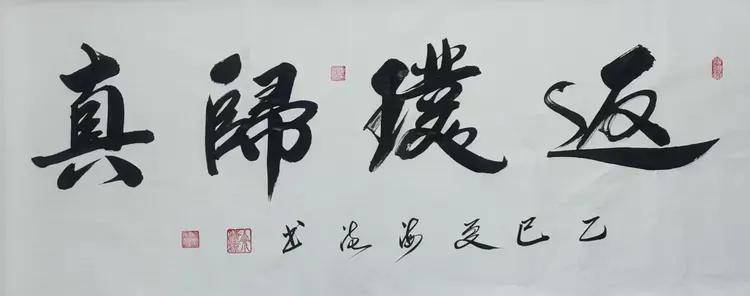 返璞歸真
乙巳夏海书